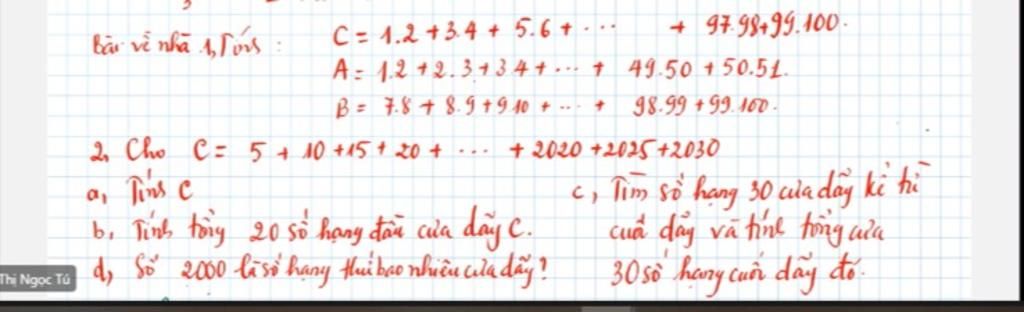 Bài về nhà 1, Tính : C = 1.2 + 3.4 + 5.6 + ... + 97.98 + 99.100.
A = 1.2 + 2.3 + 3.4 + ... + 49.50 + 50.51.
B = 7.8 + 8.9 + 9.10 + ... + 98.99 + 99.100.
2, Cho C = 5 + 10 + 15 + 20 + ... + 2020 + 2025 + 2030
a, Tính C
b, Tính tổng 20 số hạng đầu của dãy C.
d, Số 2000 là số hạng thứ bao nhiêu của dãy?
c, Tìm số hạng 30 của dãy kể từ
cuối dãy và tính tổng của
30 số hạng cuối dãy đó.
Thị Ngọc Tú